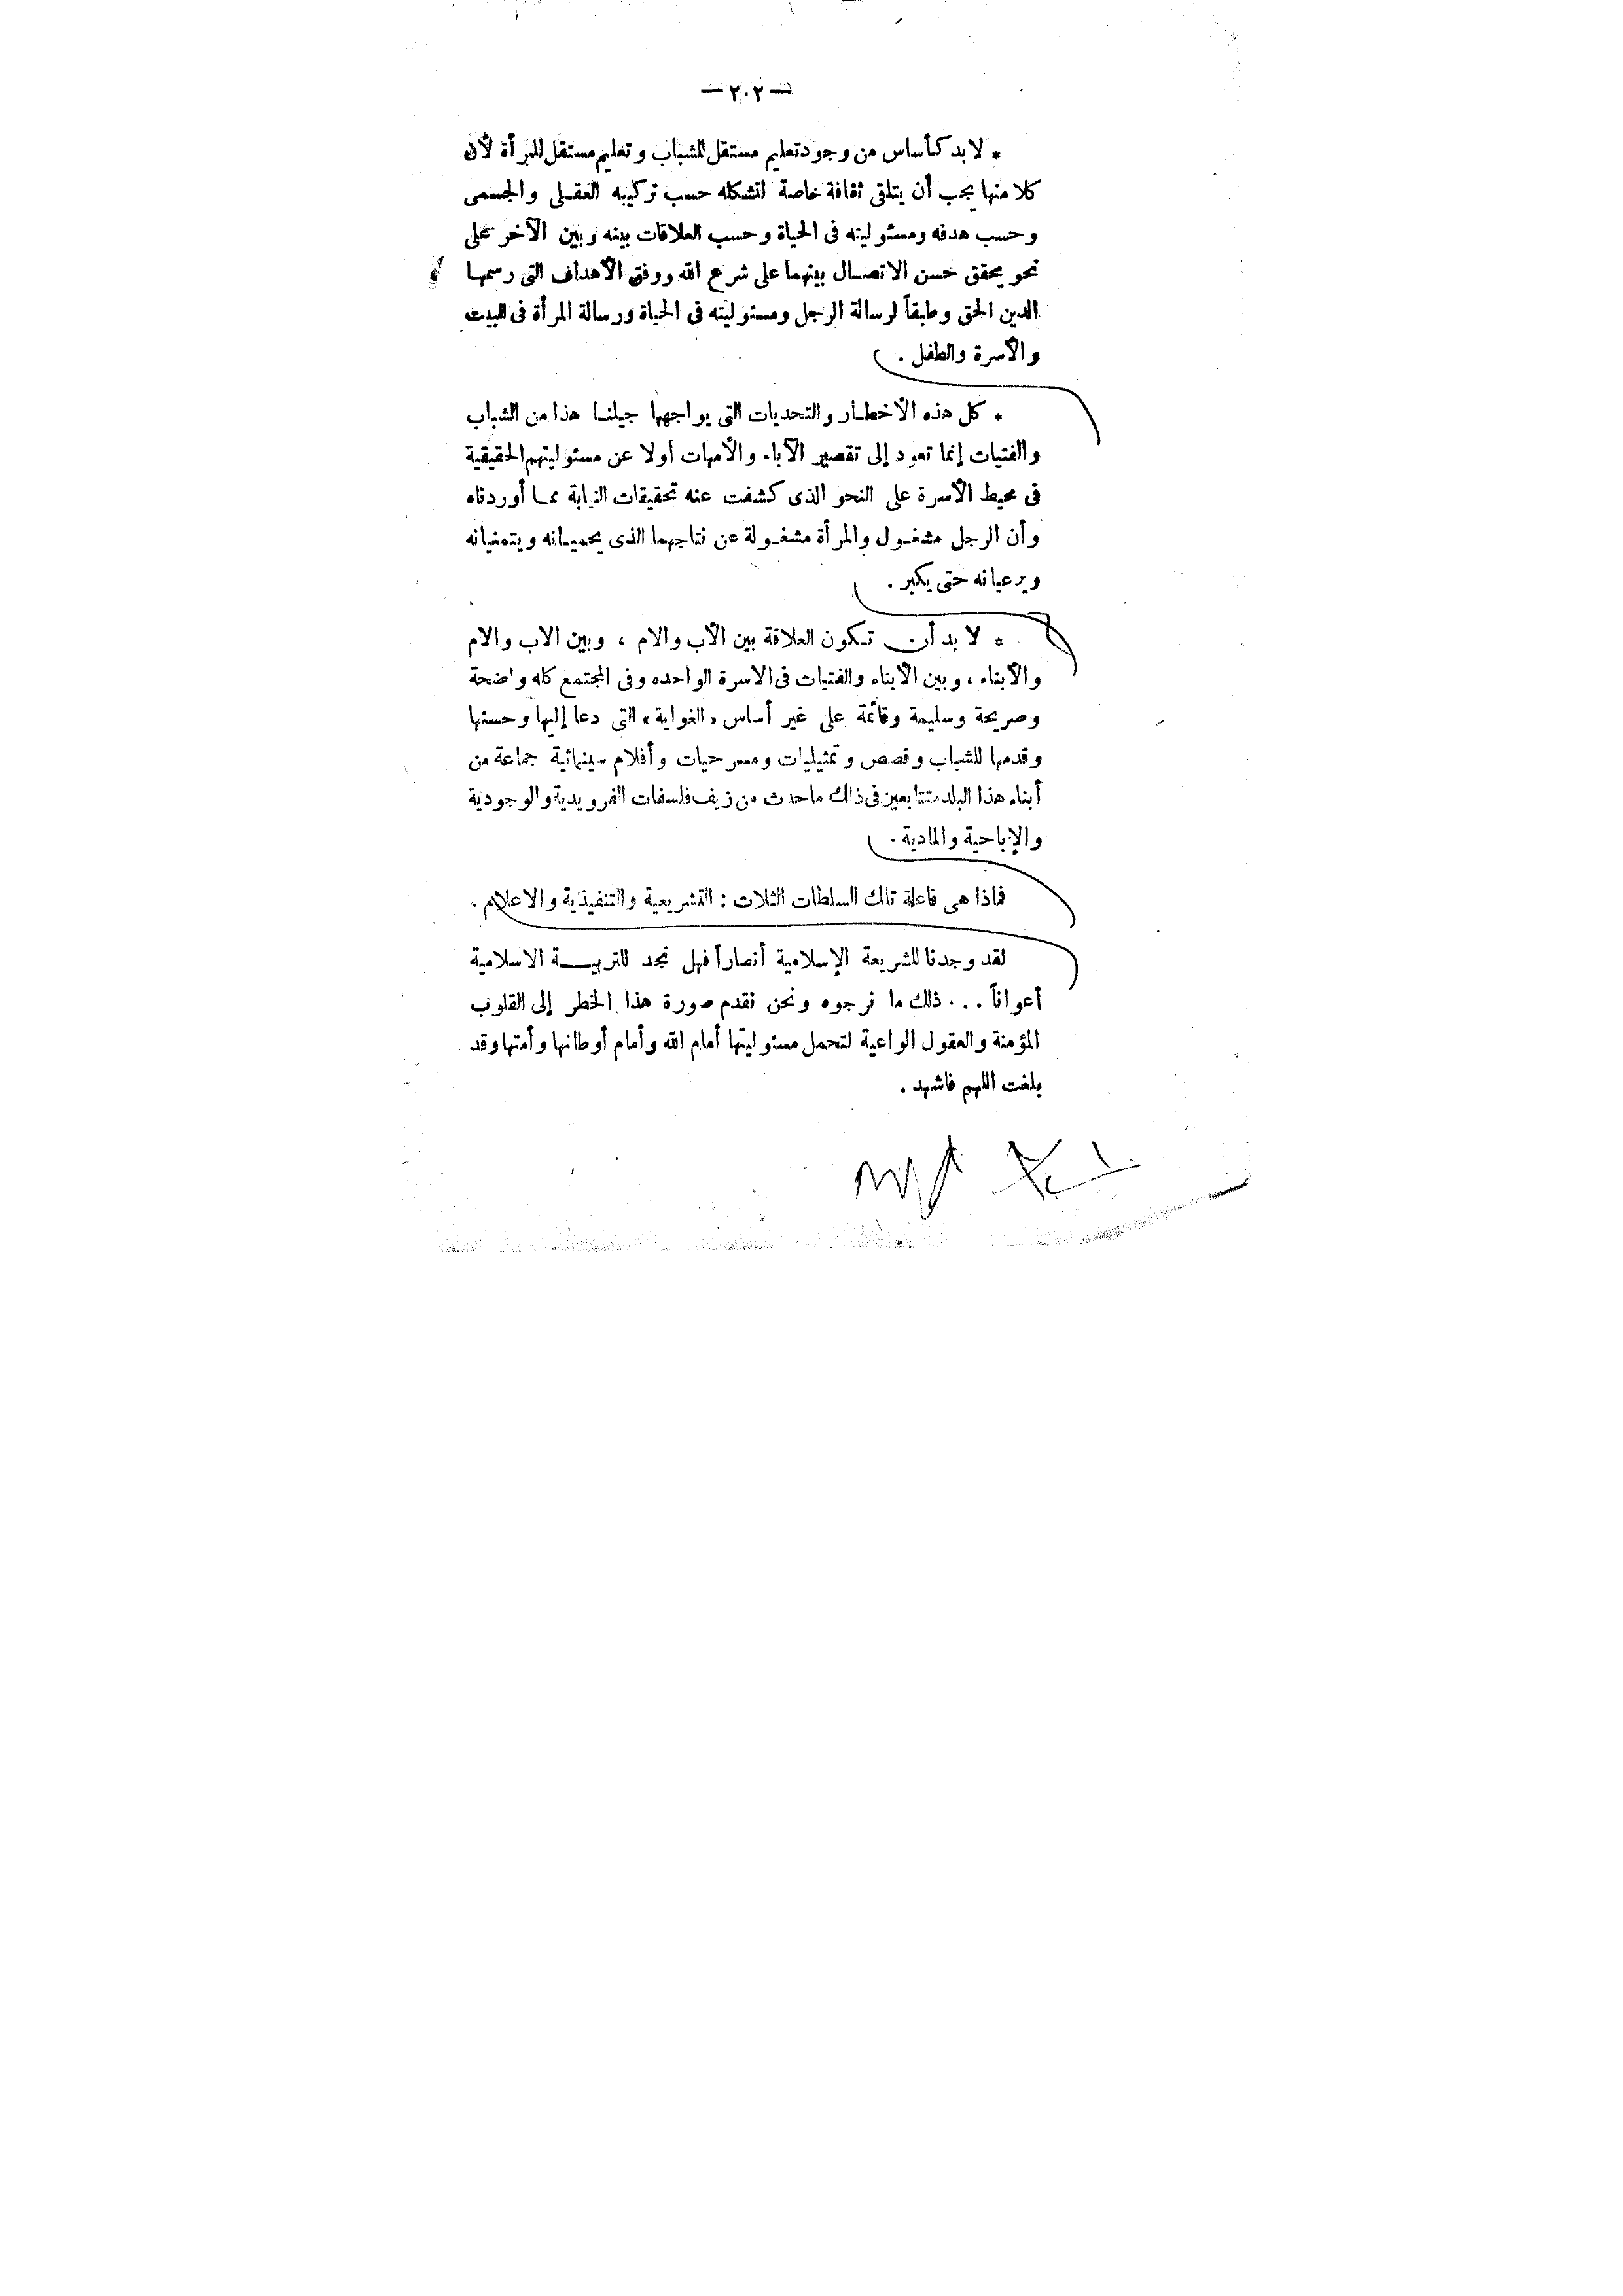 — ٢٠٢ —
* لابد كأساس من وجود تعليم مستقل للشباب وتعليم مستقل للمرأة لأن
كلا منها يجب أن يتلقى ثقافة خاصة لتشكله حسب تركيبه العقلى والجسمى
وحسب هدفه ومسئوليته فى الحياة وحسب العلاقات بينه وبين الآخر على
نحو يحقق حسن الاتصال بينهما على شرع الله ووفق الأهداف التى رسمها
الدين الحق وطبقاً لرسالة الرجل ومسئوليته فى الحياة ورسالة المرأة فى البيت
والأسرة والطفل .
* كل هذه الأخطار والتحديات التى يواجهها جيلنا هذا من الشباب
والفتيات إنما تعود إلى تقصير الآباء والأمهات أولا عن مسئوليتهم الحقيقية
فى محيط الأسرة على النحو الذى كشفت عنه تحقيقات النيابة مما أوردناه
وأن الرجل مشغول والمرأة مشغولة عن نتاجهما الذى يحميانه ويتمنيانه
ويرعيانه حتى يكبر .
* لا بد أن تكون العلاقة بين الأب والام ، وبين الاب والام
والأبناء ، وبين الأبناء والفتيات فى الاسرة الواحده وفى المجتمع كله واضحة
وصريحة وسليمة وقائمة على غير أساس «الغواية» التى دعا إليها وحسنها
وقدمها للشباب وقصص وتمثيليات ومسرحيات وأفلام سينمائية جماعة من
أبناء هذا البلد متتابعين فى ذلك ماحدث من زيف فلسفات الفرويدية والوجودية
والإباحية والمادية .
فماذا هى فاعلة تلك السلطات الثلاث : التشريعية والتنفيذية والاعلام .
لقد وجدنا للشريعة الإسلامية أنصاراً فهل نجد للتربية الاسلامية
أعواناً ... ذلك ما نرجوه ونحن نقدم صورة هذا الخطر إلى القلوب
المؤمنة والعقول الواعية لتحمل مسئوليتها أمام الله وأمام أوطانها وأمتها وقد
بلغت اللهم فاشهد .